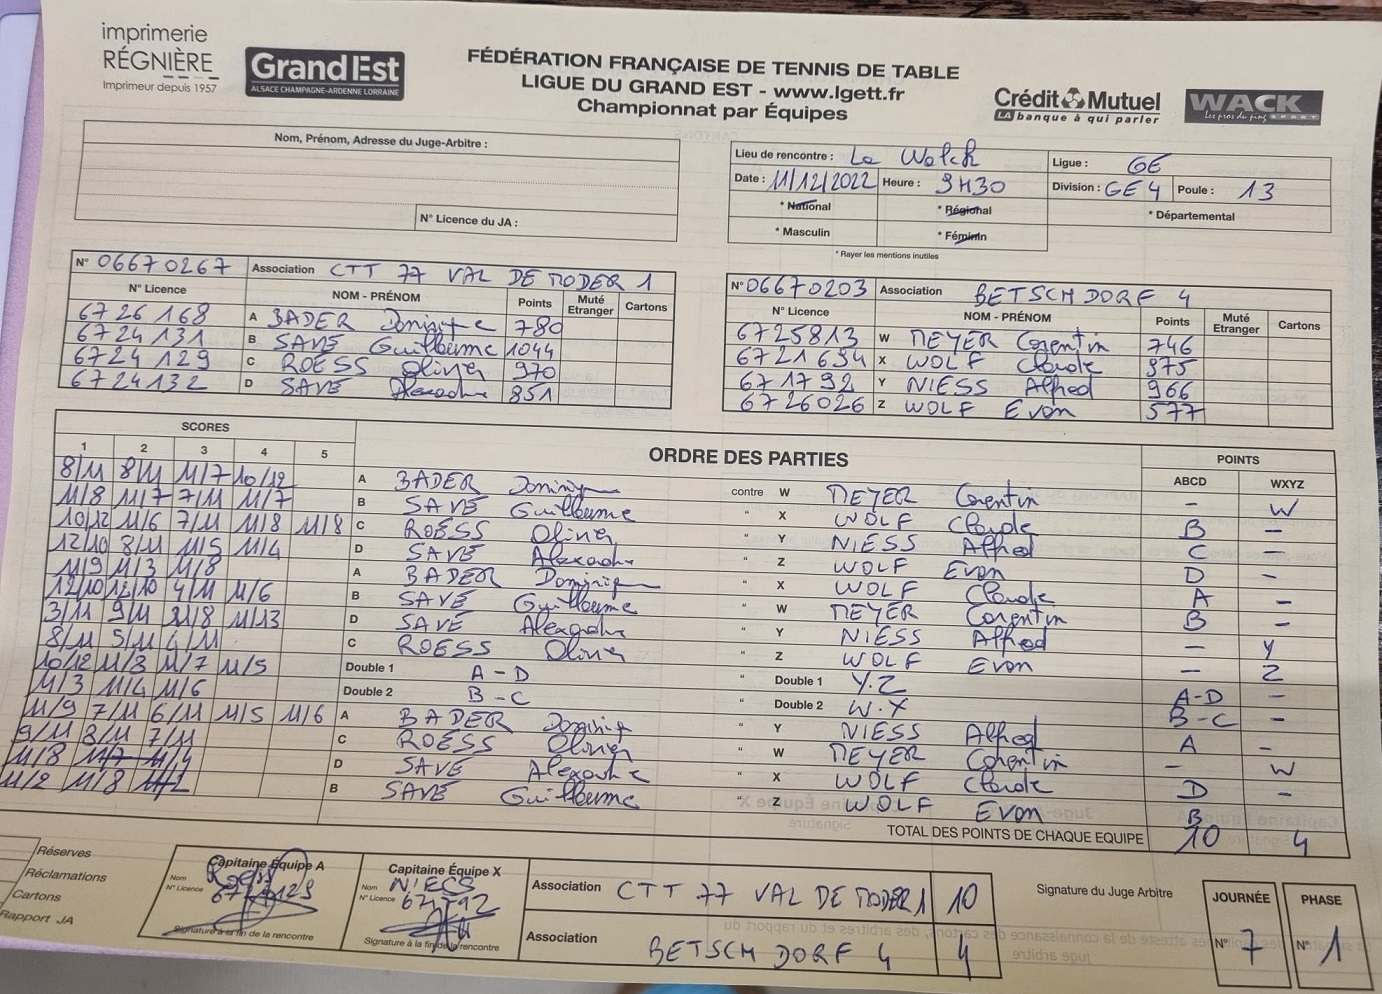 imprimerie
RÉGNIÈRE
Imprimeur depuis 1957
GrandEst
ALSACE CHAMPAGNE-ARDENNE LORRAINE
FÉDÉRATION FRANÇAISE DE TENNIS DE TABLE
LIGUE DU GRAND EST - www.lgett.fr
Championnat par Équipes
Crédit Mutuel
LA banque à qui parler
WACK
Les pros du ping SPORT
Nom, Prénom, Adresse du Juge-Arbitre :
N° Licence du JA :
Lieu de rencontre : La Walck Ligue : GE
Date : 11/12/2022 Heure : 9H30 Division : GE 4 Poule : 13
* National * Régional * Départemental
* Masculin * Féminin
* Rayer les mentions inutiles
N° 06670267 Association CTT 77 VAL DE MODER 1
N° Licence NOM - PRÉNOM Points Muté Etranger Cartons
6726168 A BADER Dominique 780
6724131 B SAVE Guillaume 1044
6724129 C ROESS Olivier 970
6724132 D SAVE Alexandre 851
N° 06670203 Association BETSCHDORF 4
N° Licence NOM - PRÉNOM Points Muté Etranger Cartons
6725813 W MEYER Corentin 746
X WOLF Claude
671792 Y NIESS Alfred 966
6726026 Z WOLF Evan 577
SCORES ORDRE DES PARTIES POINTS
1 2 3 4 5 ABCD WXYZ
8/11 8/11 11/7 10/12 A BADER Dominique contre W MEYER Corentin - W
11/8 11/7 7/11 11/7 B SAVE Guillaume " X WOLF Claude B -
10/12 11/6 7/11 11/8 11/8 C ROESS Olivier " Y NIESS Alfred C -
12/10 8/11 11/5 11/4 D SAVE Alexandre " Z WOLF Evan D -
11/9 11/3 11/8 A BADER Dominique " X WOLF Claude A -
12/10 12/10 4/11 11/6 B SAVE Guillaume " W MEYER Corentin B -
3/11 9/11 11/8 11/13 D SAVE Alexandre " Y NIESS Alfred - Y
8/11 5/11 4/11 C ROESS Olivier " Z WOLF Evan - Z
10/12 11/3 11/7 11/5 Double 1 A-D " Double 1 Y.Z A-D -
11/3 11/4 11/6 Double 2 B-C " Double 2 W.X B-C -
11/9 7/11 6/11 11/5 11/6 A BADER Dominique " Y NIESS Alfred A -
9/11 8/11 7/11 C ROESS Olivier " W MEYER Corentin - W
11/8 11/7 11/4 D SAVE Alexandre " X WOLF Claude D -
11/2 11/8 11/2 B SAVE Guillaume " Z WOLF Evan B
TOTAL DES POINTS DE CHAQUE EQUIPE 10 4
Réserves
Réclamations
Cartons
Rapport JA
Capitaine Équipe A
Nom Roess
N° Licence 6724129
Signature à la fin de la rencontre
Capitaine Équipe X
Nom NIESS
N° Licence 671792
Signature à la fin de la rencontre
Association CTT 77 VAL DE MODER 1 10
Association BETSCHDORF 4 4
Signature du Juge Arbitre
JOURNÉE
N° 7
PHASE
N° 1